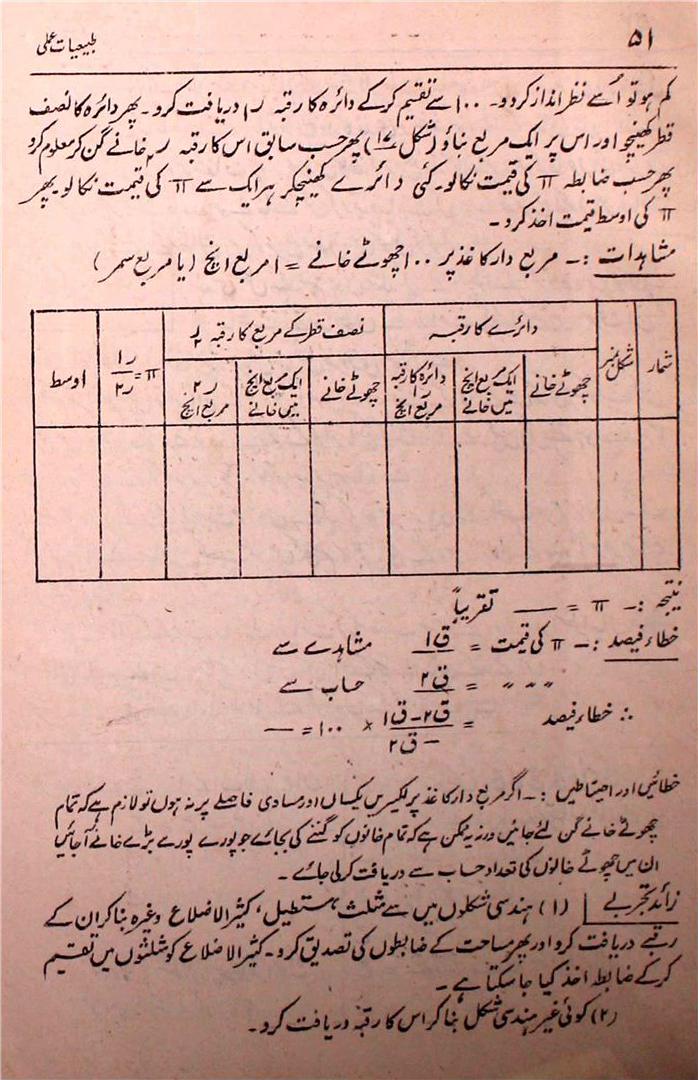 ۵۱
طبیعیات عملی
کم ہو تو اُسے نظر انداز کر دو۔ ۱۰۰ سے تقیم کر کے دائرہ کا رقبہ ر۱ دریافت کرو۔ پھر دائرہ کا نصف
قطر کھینچو اور اس پر ایک مربع بناؤ (شکل ۱۷) پھر حسب سابق اس کا رقبہ ر۲ خانے گن کر معلوم کرو
پھر حسب ضابطہ π کی قیمت نکالو۔ کئی دائرے کھینچکر ہر ایک سے π کی قیمت نکالو۔ پھر
π کی اوسط قیمت اخذ کرو۔
مشاہدات :۔ مربع دار کاغذ پر ۱۰۰ چھوٹے خانے = ۱ مربع انچ (یا مربع سمر)
شمار
شکل نمبر
دائرے کا رقبہ
نصف قطر کے مربع کا رقبہ ر۲
π = ر۱/ر۲
اوسط
چھوٹے خانے
ایک مربع انچ میں خانے
دائرہ کا رقبہ ر۱ مربع انچ
چھوٹے خانے
ایک مربع انچ میں خانے
ر۲ مربع انچ
نتیجہ :۔ π = — تقریباً
خطاء فیصد :۔ π کی قیمت = ق۱ مشاہدے سے
〃 〃 〃 = ق۲ حساب سے
∴ خطاء فیصد = ق۲-ق۱/ق۲ × ۱۰۰ = —
خطائیں اور احتیاطیں :۔ اگر مربع دار کاغذ پر لکیریں یکساں اور مساوی فاصلے پر نہ ہوں تو لازم ہے کہ تمام
چھوٹے خانے گن لئے جائیں ورنہ یہ ممکن ہے کہ تمام خانوں کو گننے کی بجائے جو پورے پورے بڑے خانے آ جائیں
ان میں چھوٹے خانوں کی تعداد حساب سے دریافت کر لی جائے۔
زائد تجربے (۱) ہندسی شکلوں میں سے مثلث، مستطیل، کثیر الاضلاع وغیرہ بنا کر ان کے
رقبے دریافت کرو اور پھر مساحت کے ضابطوں کی تصدیق کرو۔ کثیر الاضلاع کو مثلثوں میں تقیسم
کر کے ضابطہ اخذ کیا جا سکتا ہے۔
(۲) کوئی غیر ہندسی شکل بنا کر اس کا رقبہ دریافت کرو۔